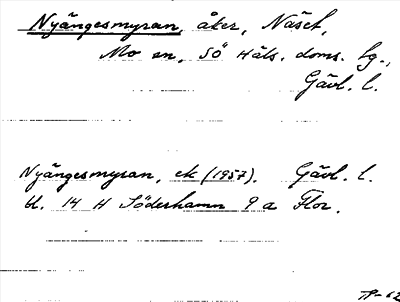 Nyängesmyran, åker, Näset,
Mo sn, Sö Häls. doms. tg.,
Gävl. l.
Nyängesmyran, ek (1957). Gävl. l.
bl. 14 H Söderhamn 9 a Flor.